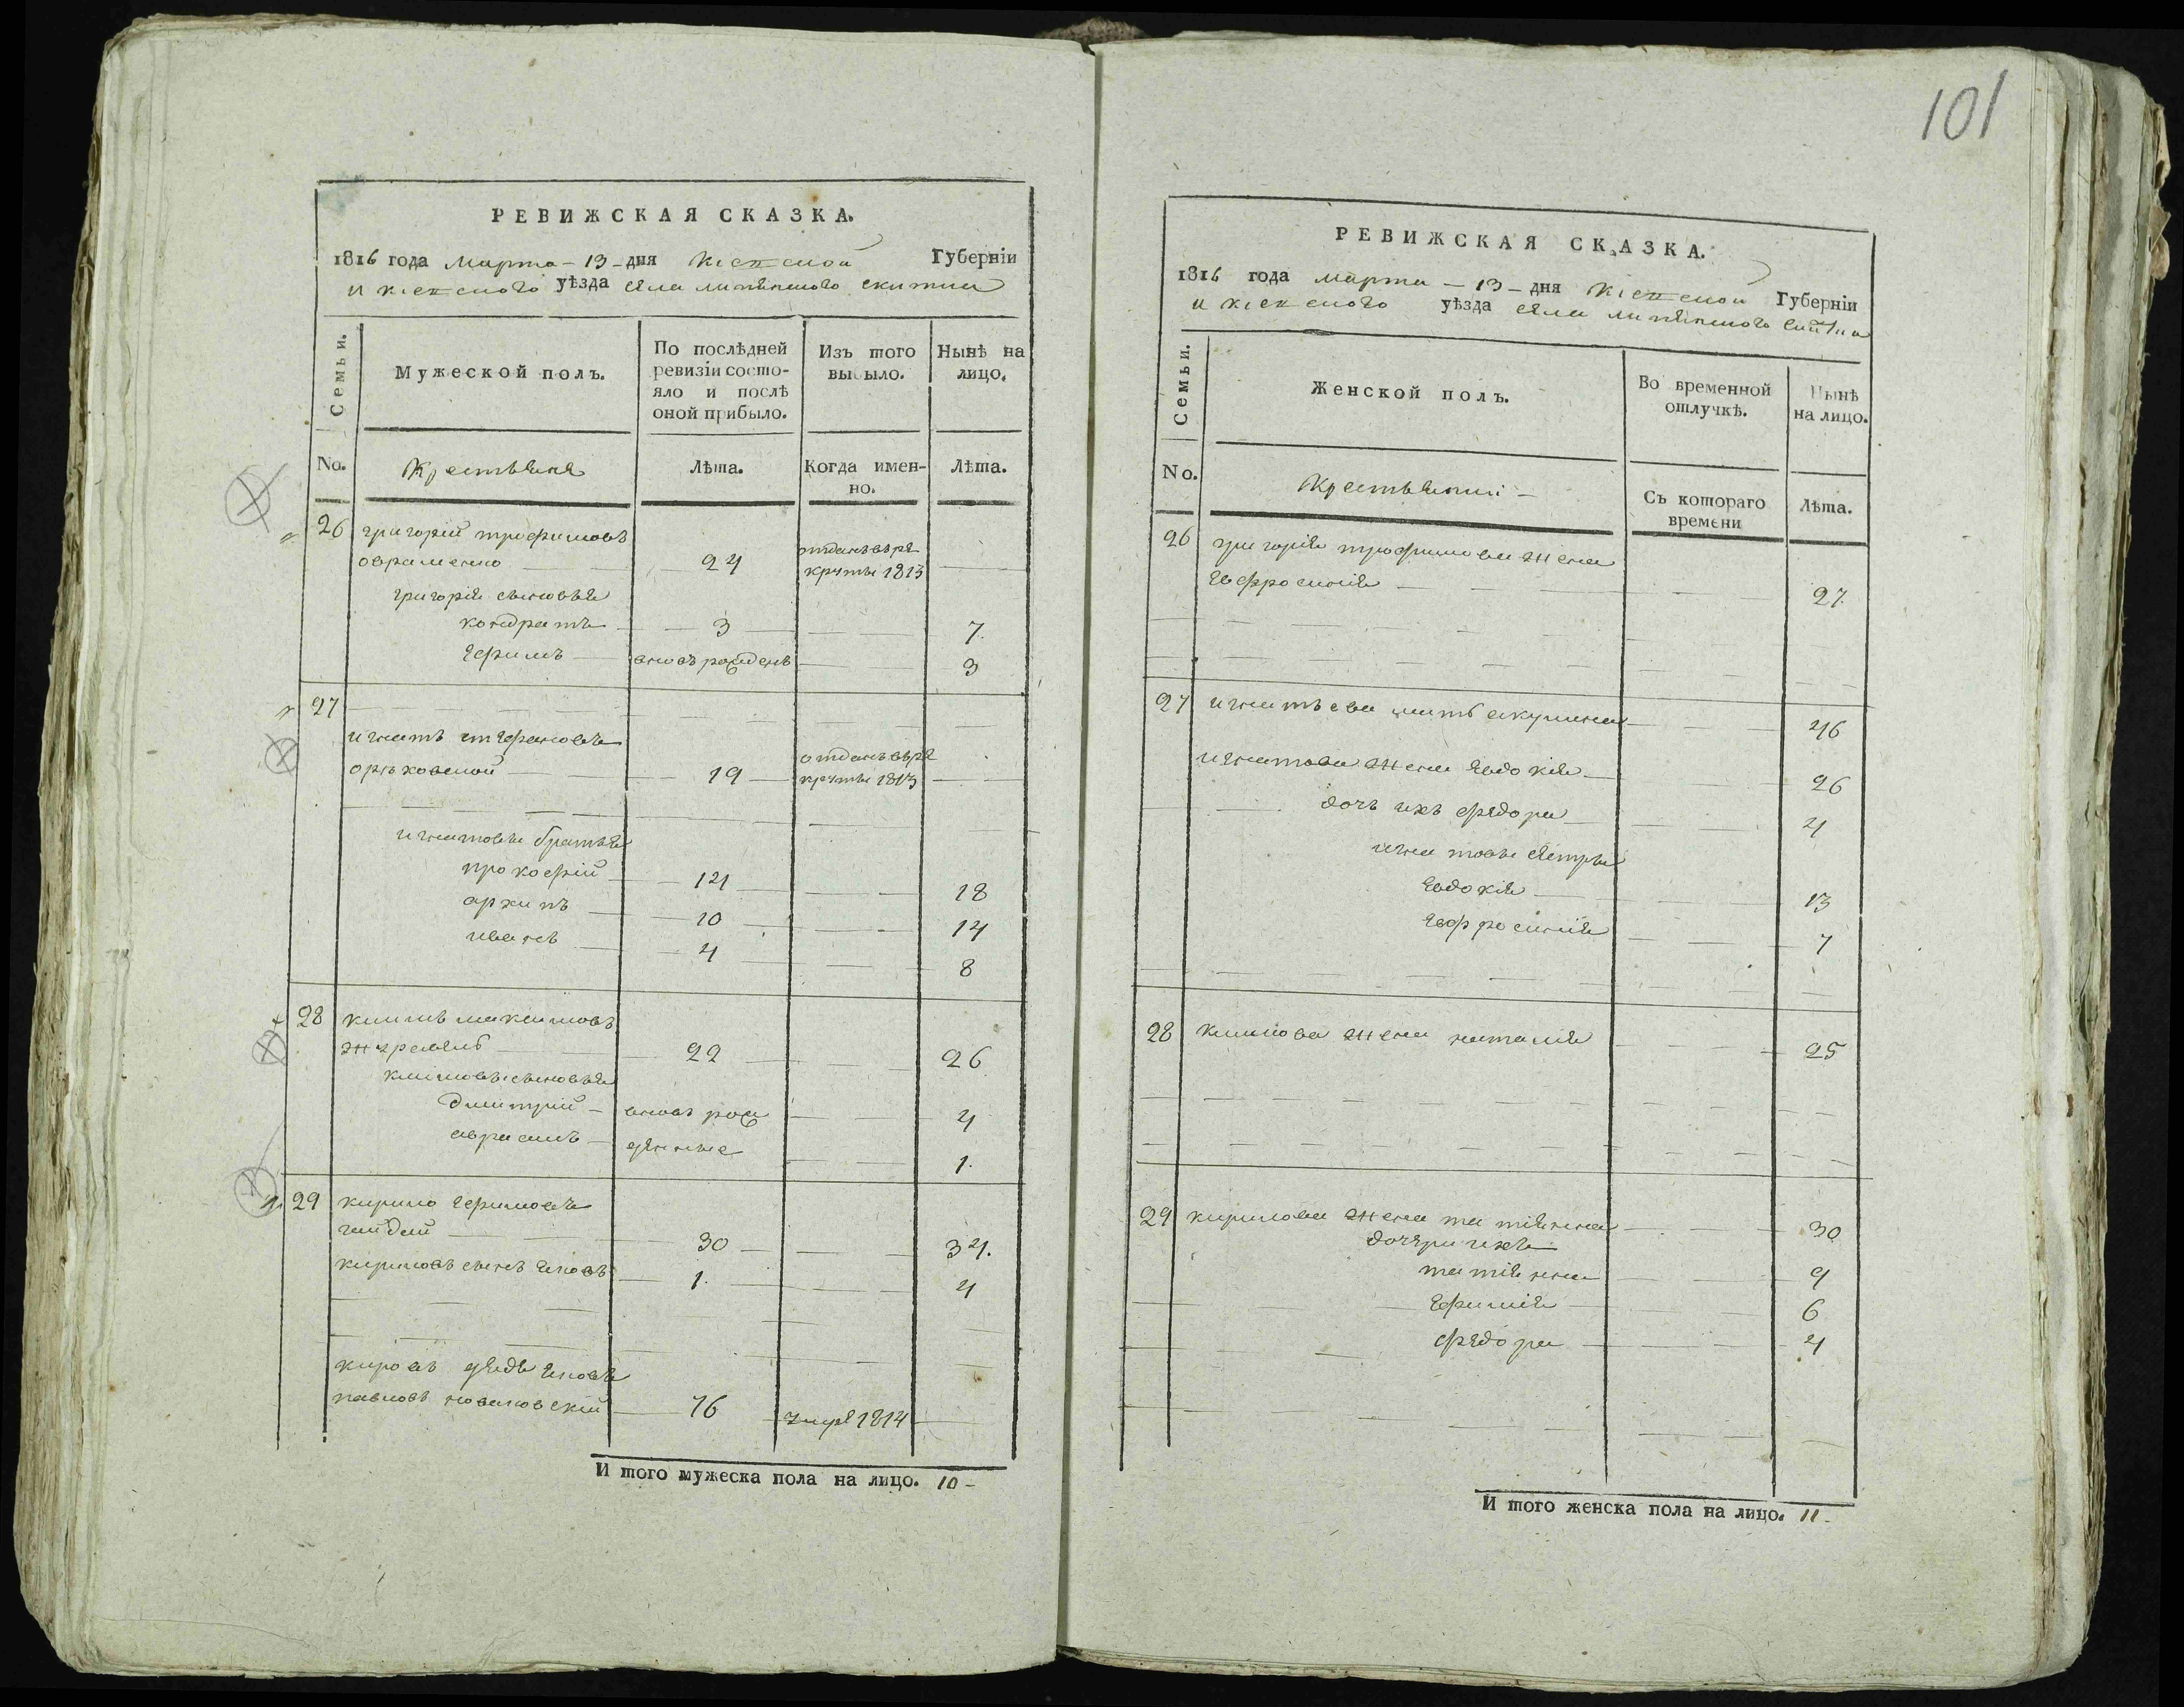 101
РЕВИЖСКАЯ СКАЗКА.
1816 года марта - 13 - дня Кіевской Губерніи
и кіевского уѣзда села
Семьи.
Мужеской полъ.
По послѣдней ревизіи состо-
яло и послѣ
оной прибыло.
Изъ того
выбыло.
Нынѣ на
лицо.
No.
Крестьяне
Лѣта.
Когда имен-
но.
Лѣта.
26 григорій трофимовъ
авраменко 24 отданъ в ре
круты 1813
григорія сыновья
кондратъ 3 7.
ефимъ вновь рожденъ 3
27
игнатъ стефановъ
ореховской 19 отданъ в ре
круты 1813
игнатовы братья
прокофій 14 18
архипъ 10 14
иванъ 4 8
28 климъ максимовъ
журавль 22 26
климовы сыновья
димитрій вновь рож 4
авраамъ денные 1.
29 кирило ефимовъ
гайдай 30 34.
кириловъ сынъ яковъ 1. 4
дядя яковъ
павловъ 76 умре 1814
И того мужеска пола на лицо. 10 -
РЕВИЖСКАЯ СКАЗКА.
1816 года марта - 13 - дня Кіевской Губерніи
и кіевского уѣзда села
Семьи.
Женской полъ.
Во временной
отлучкѣ.
Нынѣ
на лицо.
No.
Крестьянки -
Съ котораго
времени
Лѣта.
26 григорія трофимова жена
евфросинія 27.
27 игнатьева мать акулина 46
игнатова жена евдокія 26
дочь ихъ федора 4
игнатовы сестры
евдокія 13
евфросинія 7
28 климова жена наталія 25
29 кирилова жена татіянна 30
дочери ихъ
татіянна 9
ефимія 6
федора 4
И того женска пола на лицо. 11 -